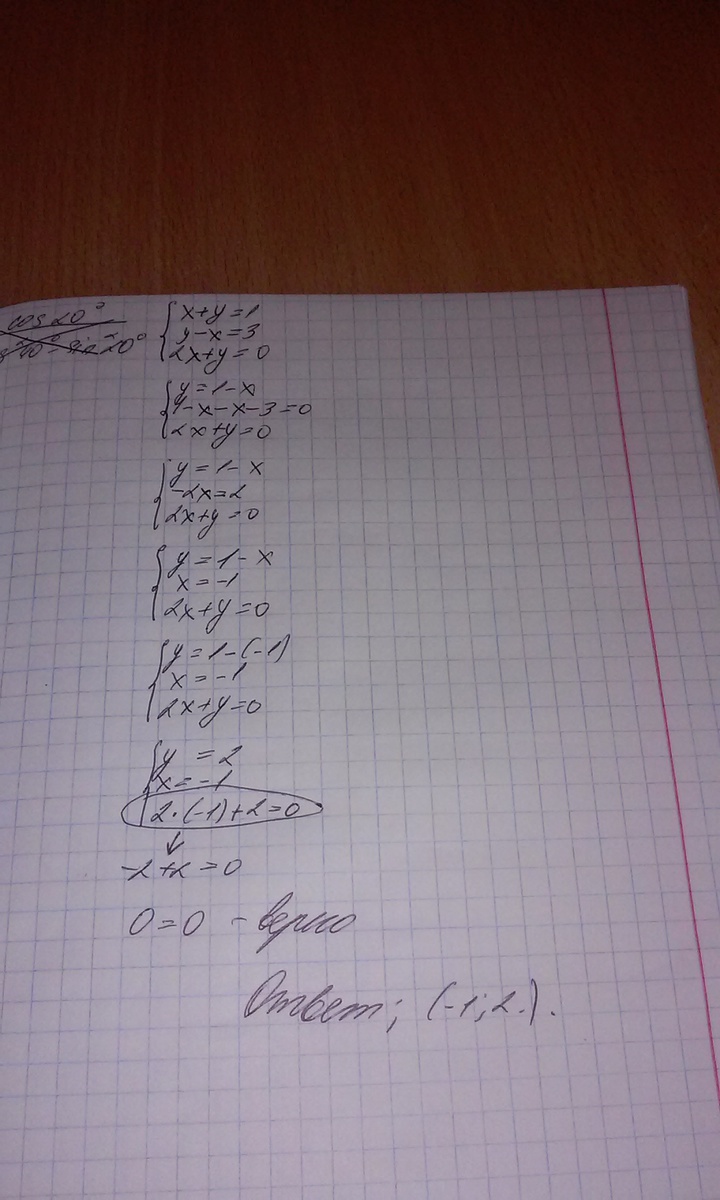 cos 20°
x+y=1
y-x=3
2x+y=0
y=1-x
1-x-x-3=0
2x+y=0
y=1-x
-2x=2
2x+y=0
y=1-x
x=-1
2x+y=0
y=1-(-1)
x=-1
2x+y=0
y=2
x=-1
2·(-1)+2=0
↓
-2+2=0
0=0 - верно
Ответ; (-1;2.).